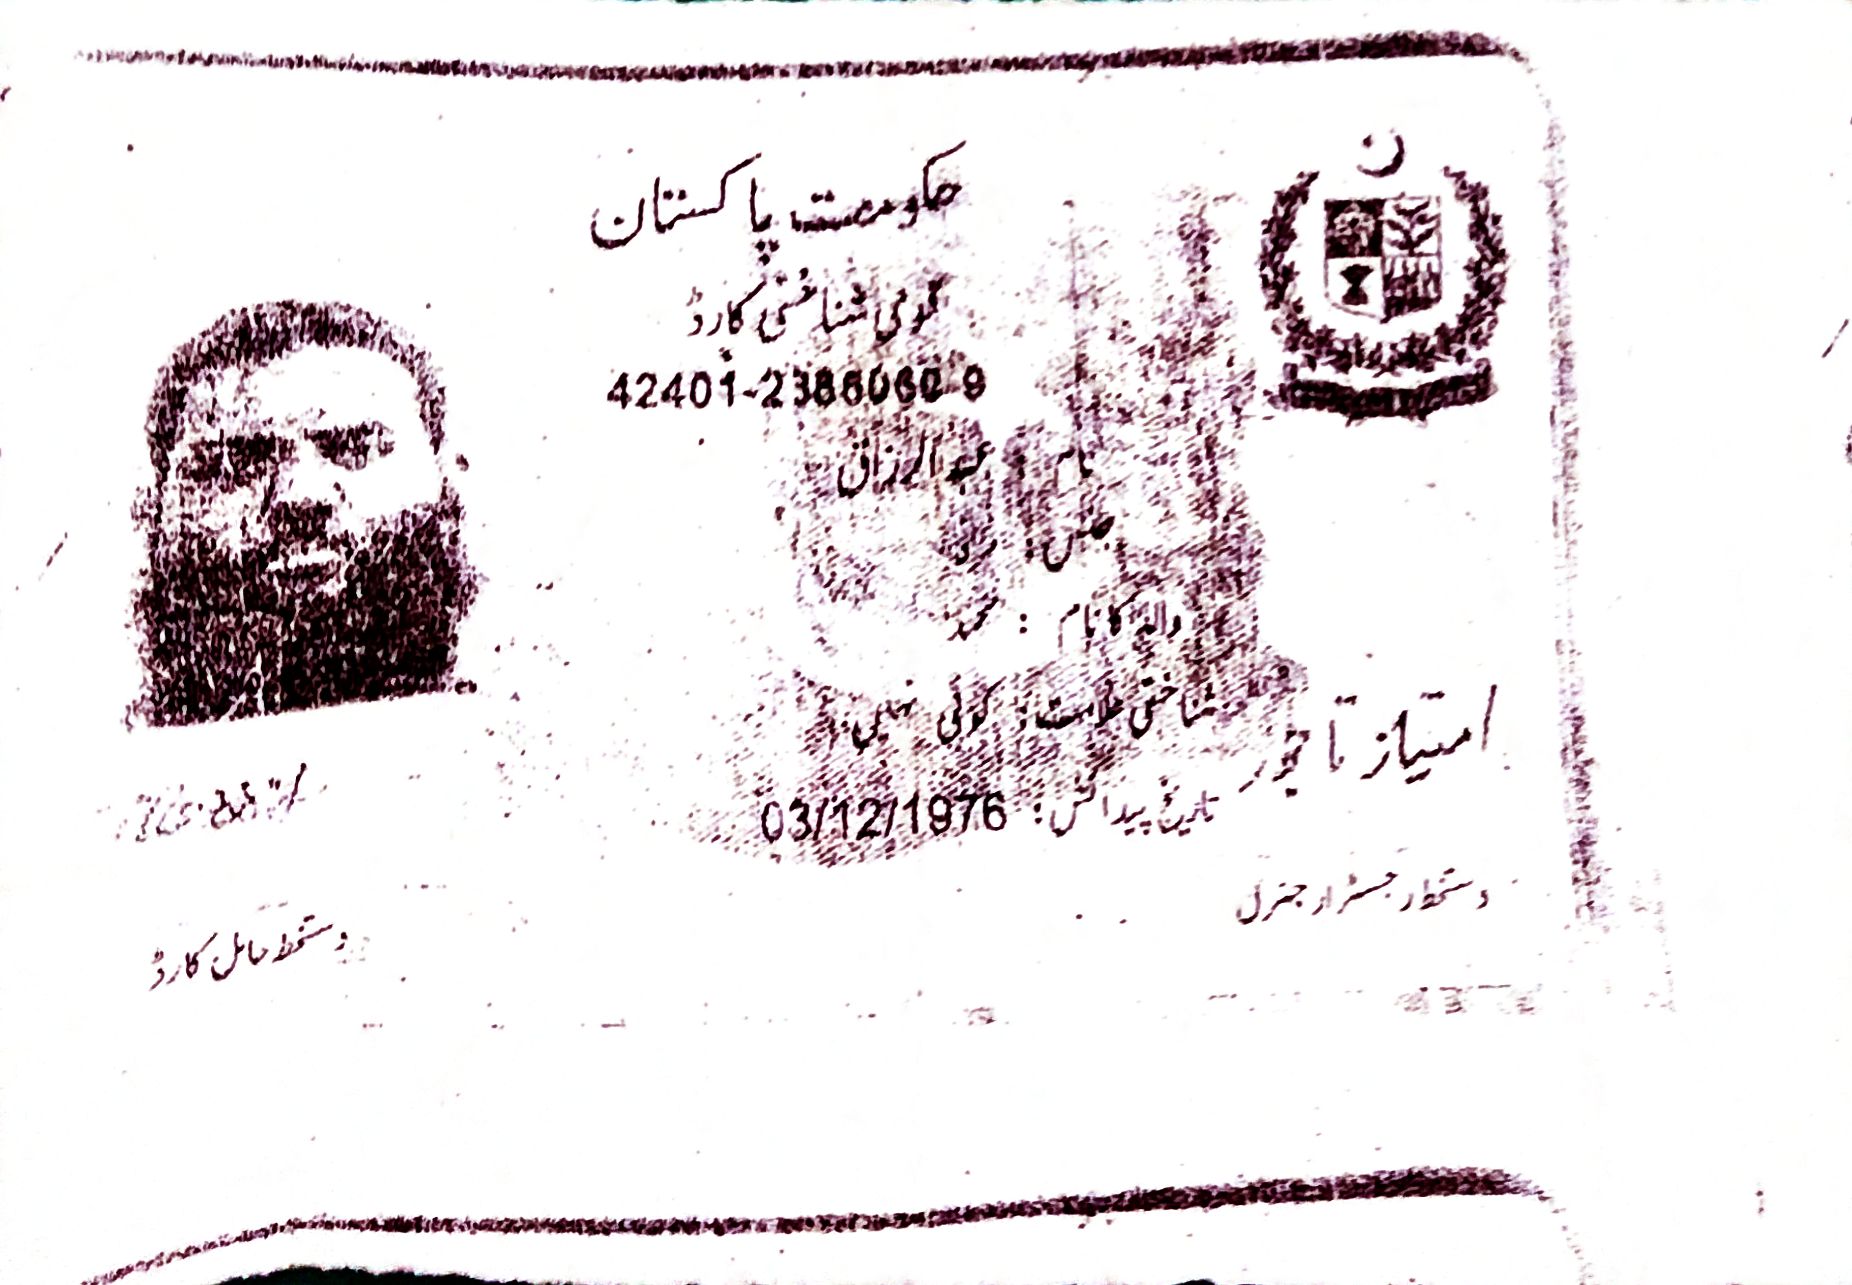 حکومت پاکستان
قومی شناختی کارڈ
42401-2386060-9
نام : عبدالرزاق
جنس : مرد
والد کا نام : محمد
شناختی علامت : کوئی نہیں
تاریخ پیدائش : 03/12/1976
امتیاز تاجور
دستخط رجسٹرار جنرل
دستخط حامل کارڈ